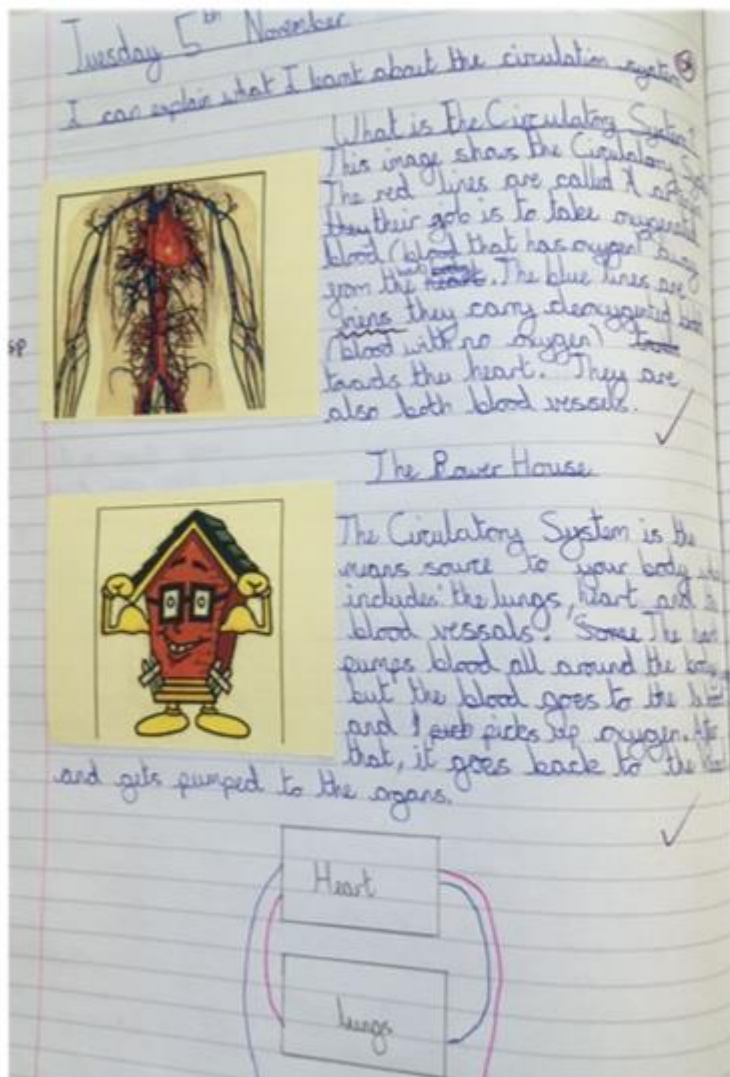 Tuesday 5th November
I can explain what I learnt about the circulation system
What is the Circulatory System?
This image shows the Circulatory
The red lines are called
their job is to take oxygenated
blood (blood that has oxygen) away
from the. The blue lines are
viens they carry deoxygented
sp
(blood with no oxygen)
towards the heart. They are
also both blood vessels.
The Power House
The Circulatory System is the
means source to your body
includes the lungs, heart and
blood vessals. The
pumps blood all around the body,
but the blood goes to the
and picks up oxygen.
that, it goes back to the
and gets pumped to the organs.
Heart
Lungs